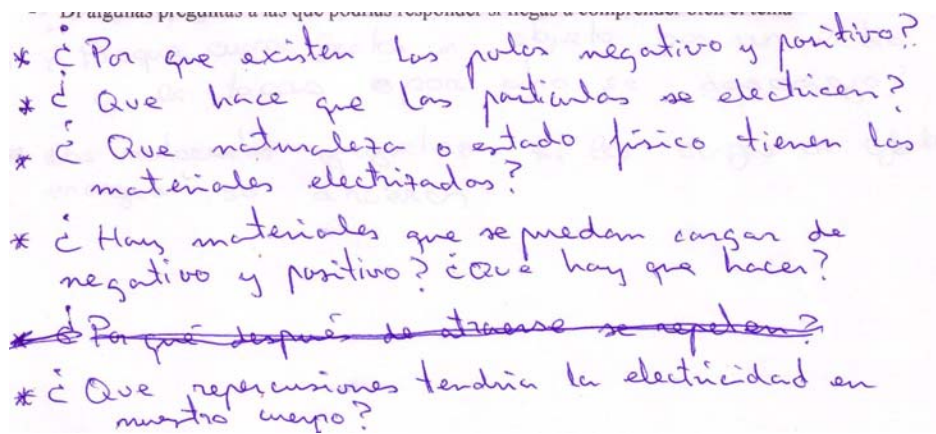 Di algunas preguntas a las que podrías responder si llegas a comprender bien el tema
* ¿Por que existen los polos negativo y positivo?
* ¿Que hace que las particulas se electricen?
* ¿Que naturaleza o estado físico tienen los
materiales electrizados?
* ¿Hay materiales que se puedan cargar de
negativo y positivo? ¿Qué hay que hacer?
* ¿Por qué después de atraerse se repelen?
* ¿Que repercusiones tendria la electricidad en
nuestro cuerpo?